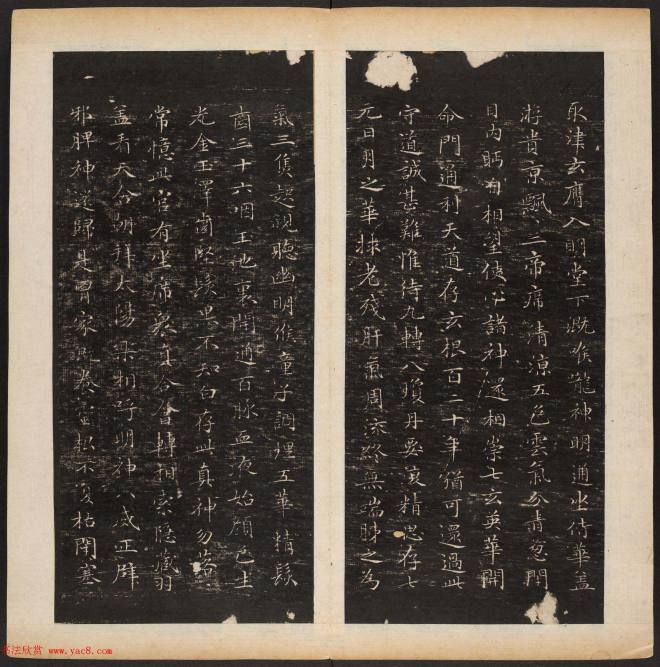 取津玄膺入明堂下溉喉嚨神明通坐侍華蓋
游貴京飄三帝席清涼五色雲氣分青葱閉
目内眄自相望使心諸神還相崇七玄英華開
命門通利天道存玄根百二十年猶可還過此
守道誠甚難惟待九轉八瓊丹要復精思存七
元日月之華救老殘肝氣周流終無端肺之為
氣三焦起視聽幽明候童子調理五華精髮
齒三十六咽玉池裏開通百脉血液始顏色生
光金玉澤齒堅髮黑不知白存此真神勿落
常憶此宮有坐席衆真合會轉相索隱藏羽
蓋看天舍朝拜太陽樂相呼明神八威正辟
邪脾神還歸是胃家躭養靈根不復枯閉塞
书法欣赏 www.yac8.com